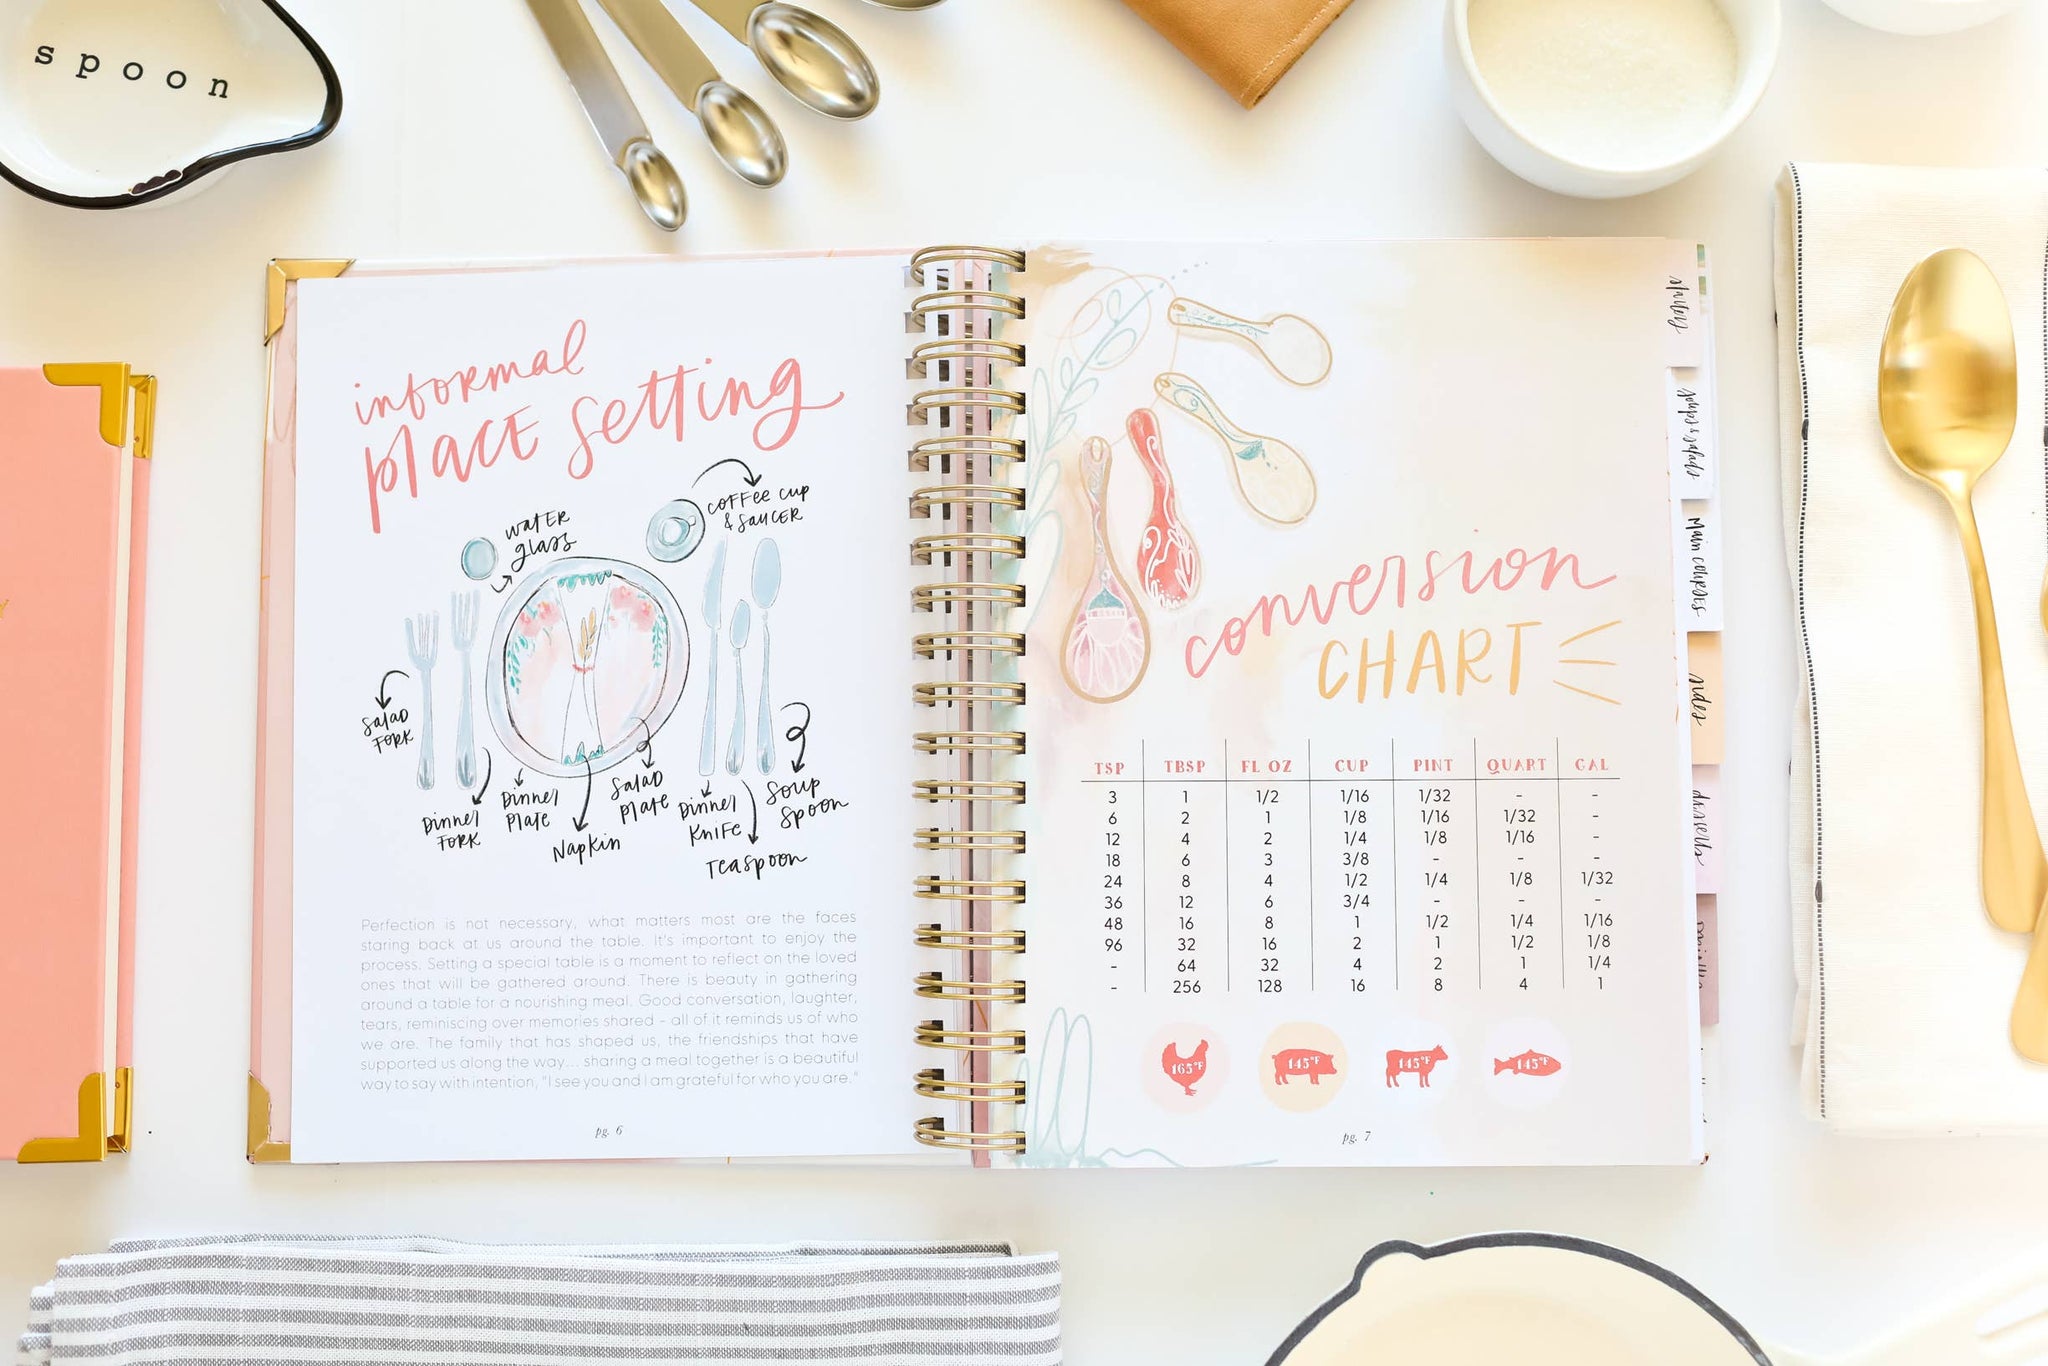 spoon
informal
place setting
coffee cup
& saucer
water
glass
salad
fork
Dinner
fork
Dinner
plate
Napkin
salad
plate
Dinner
Knife
Teaspoon
soup
spoon
Perfection is not necessary, what matters most are the faces
staring back at us around the table. It's important to enjoy the
process. Setting a special table is a moment to reflect on the loved
ones that will be gathered around. There is beauty in gathering
around a table for a nourishing meal. Good conversation, laughter,
tears, reminiscing over memories shared - all of it reminds us of who
we are. The family that has shaped us, the friendships that have
supported us along the way... sharing a meal together is a beautiful
way to say with intention, "I see you and I am grateful for who you are."
pg. 6
conversion
CHART
TSP TBSP FL OZ CUP PINT QUART GAL
3 1 1/2 1/16 1/32 - -
6 2 1 1/8 1/16 1/32 -
12 4 2 1/4 1/8 1/16 -
18 6 3 3/8 - - -
24 8 4 1/2 1/4 1/8 1/32
36 12 6 3/4 - - -
48 16 8 1 1/2 1/4 1/16
96 32 16 2 1 1/2 1/8
- 64 32 4 2 1 1/4
- 256 128 16 8 4 1
165°F 145°F 145°F 145°F
pg. 7
soups & salads
Main courses
sides
desserts